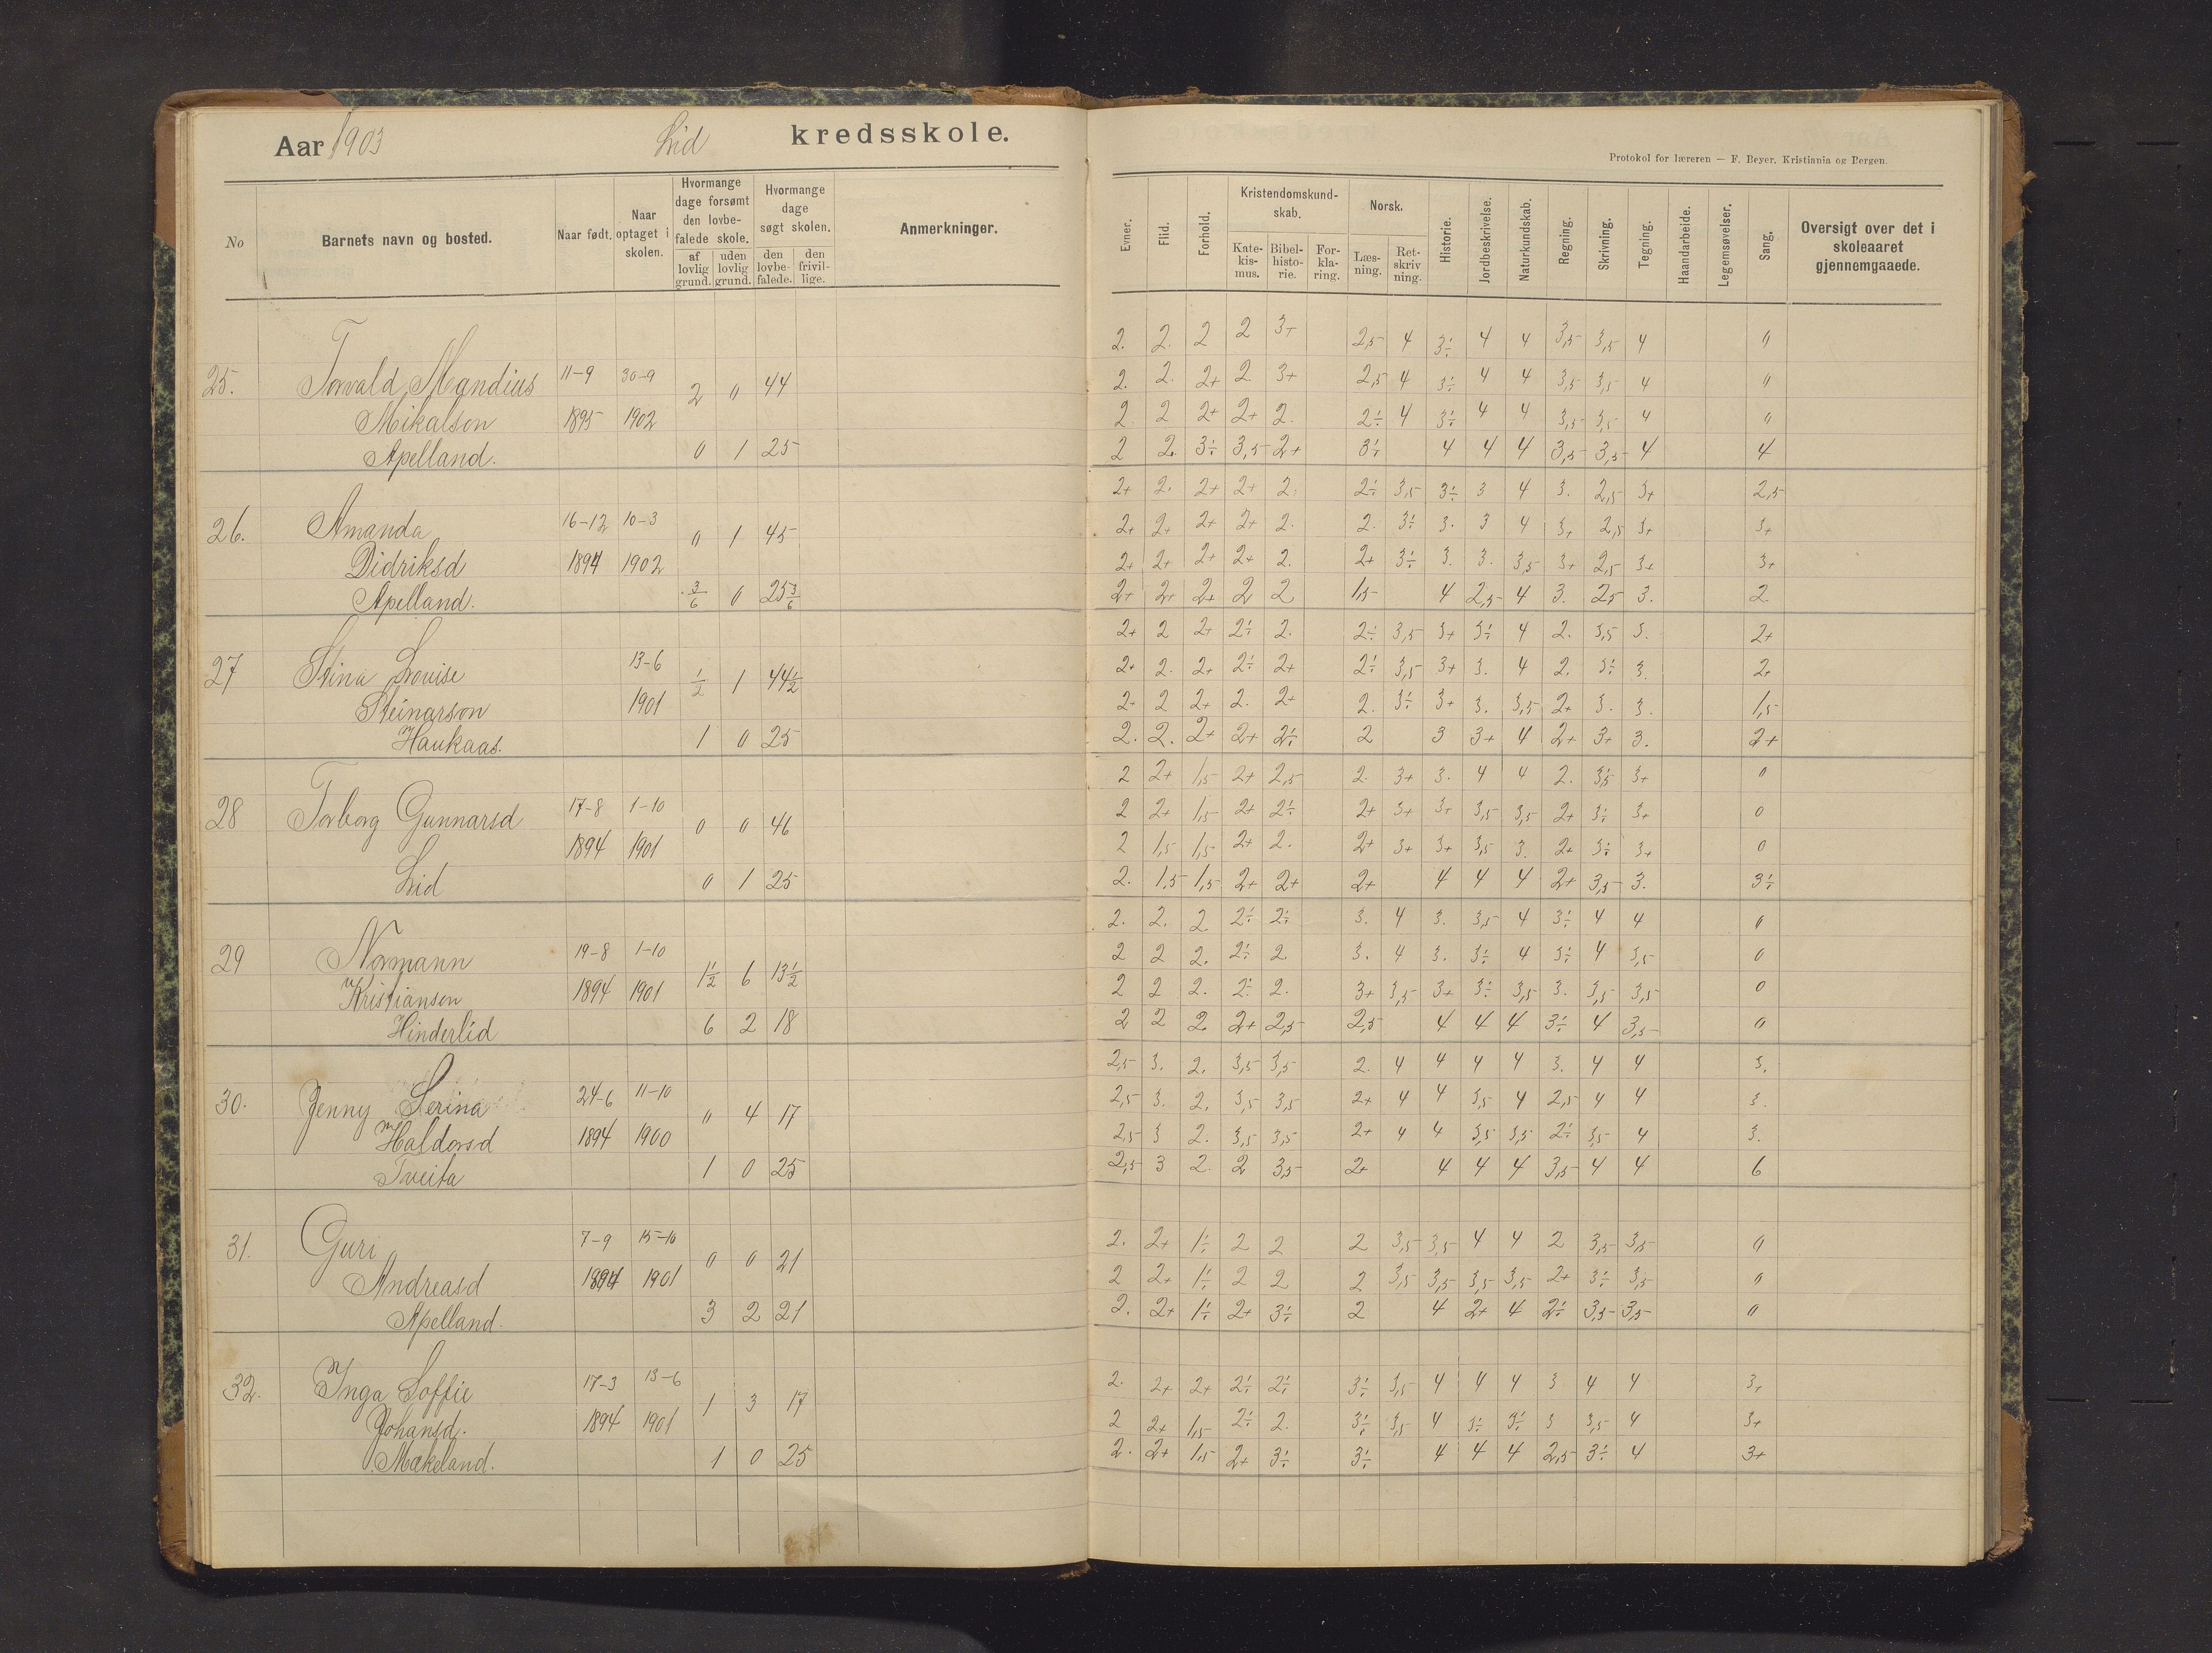 Aar 1903 Lid kredsskole.
Protokol for læreren — F. Beyer. Kristiania og Bergen.
No Barnets navn og bosted. Naar født. Naar optaget i skolen. Hvormange dage forsømt den lovbefalede skole. af lovlig grund. uden lovlig grund. Hvormange dage søgt skolen. den lovbefalede. den frivillige. Anmerkninger.
Evner. Flid. Forhold. Kristendomskundskab. Katekismus. Bibelhistorie. Forklaring. Norsk. Læsning. Retskrivning. Historie. Jordbeskrivelse. Naturkundskab. Regning. Skrivning. Tegning. Haandarbeide. Legemsøvelser. Sang. Oversigt over det i skoleaaret gjennemgaaede.
2. 2. 2 2 3+ 2,5 4 3÷ 4 4 3,5 3,5 4 0
25. Torvald Mandius 11-9 30-9 2 0 44 2. 2. 2+ 2 3+ 2,5 4 3÷ 4 4 3,5 3,5 4 0
Mikalson 1895 1902 2 2 2+ 2+ 2. 2÷ 4 3÷ 4 4 3,5 3,5 4 0
Apelland. 0 1 25 2 2. 3÷ 3,5 2+ 3÷ 4 4 4 3,5 3,5 4 4
2+ 2. 2+ 2+ 2. 2÷ 3,5 3÷ 3 4 3. 2,5 3+ 2,5
26. Amanda 16-12 10-3 0 1 45 2+ 2+ 2+ 2+ 2. 2. 3÷ 3. 3 4 3+ 2,5 3+ 3+
Didriksd 1894 1902 2+ 2+ 2+ 2+ 2. 2+ 3÷ 3. 3. 3,5 3+ 2,5 3+ 3+
Apelland. 3/6 0 25 3/6 2+ 2+ 2+ 2 2 1,5 4 2,5 4 3. 2,5 3. 2.
2+ 2 2+ 2÷ 2. 2÷ 3,5 3+ 3÷ 4 2. 3,5 3. 2+
27 Stina Lovise 13-6 1/2 1 44 1/2 2+ 2. 2+ 2÷ 2+ 2÷ 3,5 3+ 3. 4 2. 3÷ 3. 2+
Steinarson 1901 2+ 2 2+ 2. 2+ 2. 3÷ 3+ 3. 3,5 2+ 3. 3. 1,5
Haukaas. 1 0 25 2. 2. 2+ 2+ 2÷ 2 3 3+ 4 2+ 3+ 3. 2+
2 2+ 1,5 2+ 2,5 2. 3+ 3. 4 4 2. 3,5 3+ 0
28 Torborg Gunnarsd 17-8 1-10 0 0 46 2 2+ 1,5 2+ 2÷ 2+ 3+ 3+ 3,5 3,5 2+ 3÷ 3+ 0
1894 1901 2 1,5 1,5 2+ 2. 2+ 3+ 3+ 3,5 3. 2+ 3÷ 3+ 0
Lid 0 1 25 2. 1,5 1,5 2+ 2+ 2+ 4 4 4 2+ 3,5 3. 3÷
2. 2. 2 2÷ 2÷ 3. 4 3. 3,5 4 3÷ 4 4 0
29 Normann 19-8 1-10 1 1/2 6 13 1/2 2 2 2. 2÷ 2. 3. 4 3. 3÷ 4 3÷ 4 3,5 0
Kristiansen 1894 1901 2 2 2. 2÷ 2. 3+ 3,5 3+ 3÷ 3,5 3. 3,5 3,5 0
Hinderlid 6 2 18 2 2 2. 2+ 2,5 2,5 4 4 4 3÷ 4 3,5 0
2,5 3. 2. 3,5 3,5 2. 4 4 4 4 3. 4 4 3.
30. Jenny Serina 24-6 11-10 0 4 17 2,5 3. 2. 3,5 3,5 2+ 4 4 3,5 4 2,5 4 4 3.
Haldorsd 1894 1900 2,5 3 2. 3,5 3,5 2+ 4 4 3,5 3,5 2÷ 3,5 4 3.
Tveita 1 0 25 2,5 3 2. 2 3,5 2+ 4 4 4 3,5 4 4 6
31. Guri 7-9 15-10 0 0 21 2. 2+ 1÷ 2 2 2 3,5 3,5 4 4 2 3,5 3,5 0
Andreasd 1894 1901 2 2+ 1÷ 2 2 2 3,5 3,5 3,5 3,5 2+ 3÷ 3,5 0
Apelland. 3 2 21 2. 2+ 1÷ 2+ 3÷ 2 4 2+ 4 2÷ 3,5 3,5 0
32. Inga Soffie 17-3 13-6 1 3 17 2. 2+ 2+ 2÷ 2÷ 3÷ 3,5 4 4 4 3 4 4 3+
Johansd. 1894 1901 2 2+ 1,5 2÷ 2. 3÷ 3,5 4 3÷ 3÷ 3 3,5 4 3+
Mækeland. 1 0 25 2. 2+ 1,5 2+ 3÷ 3÷ 4 4 4 2,5 3÷ 4 3+